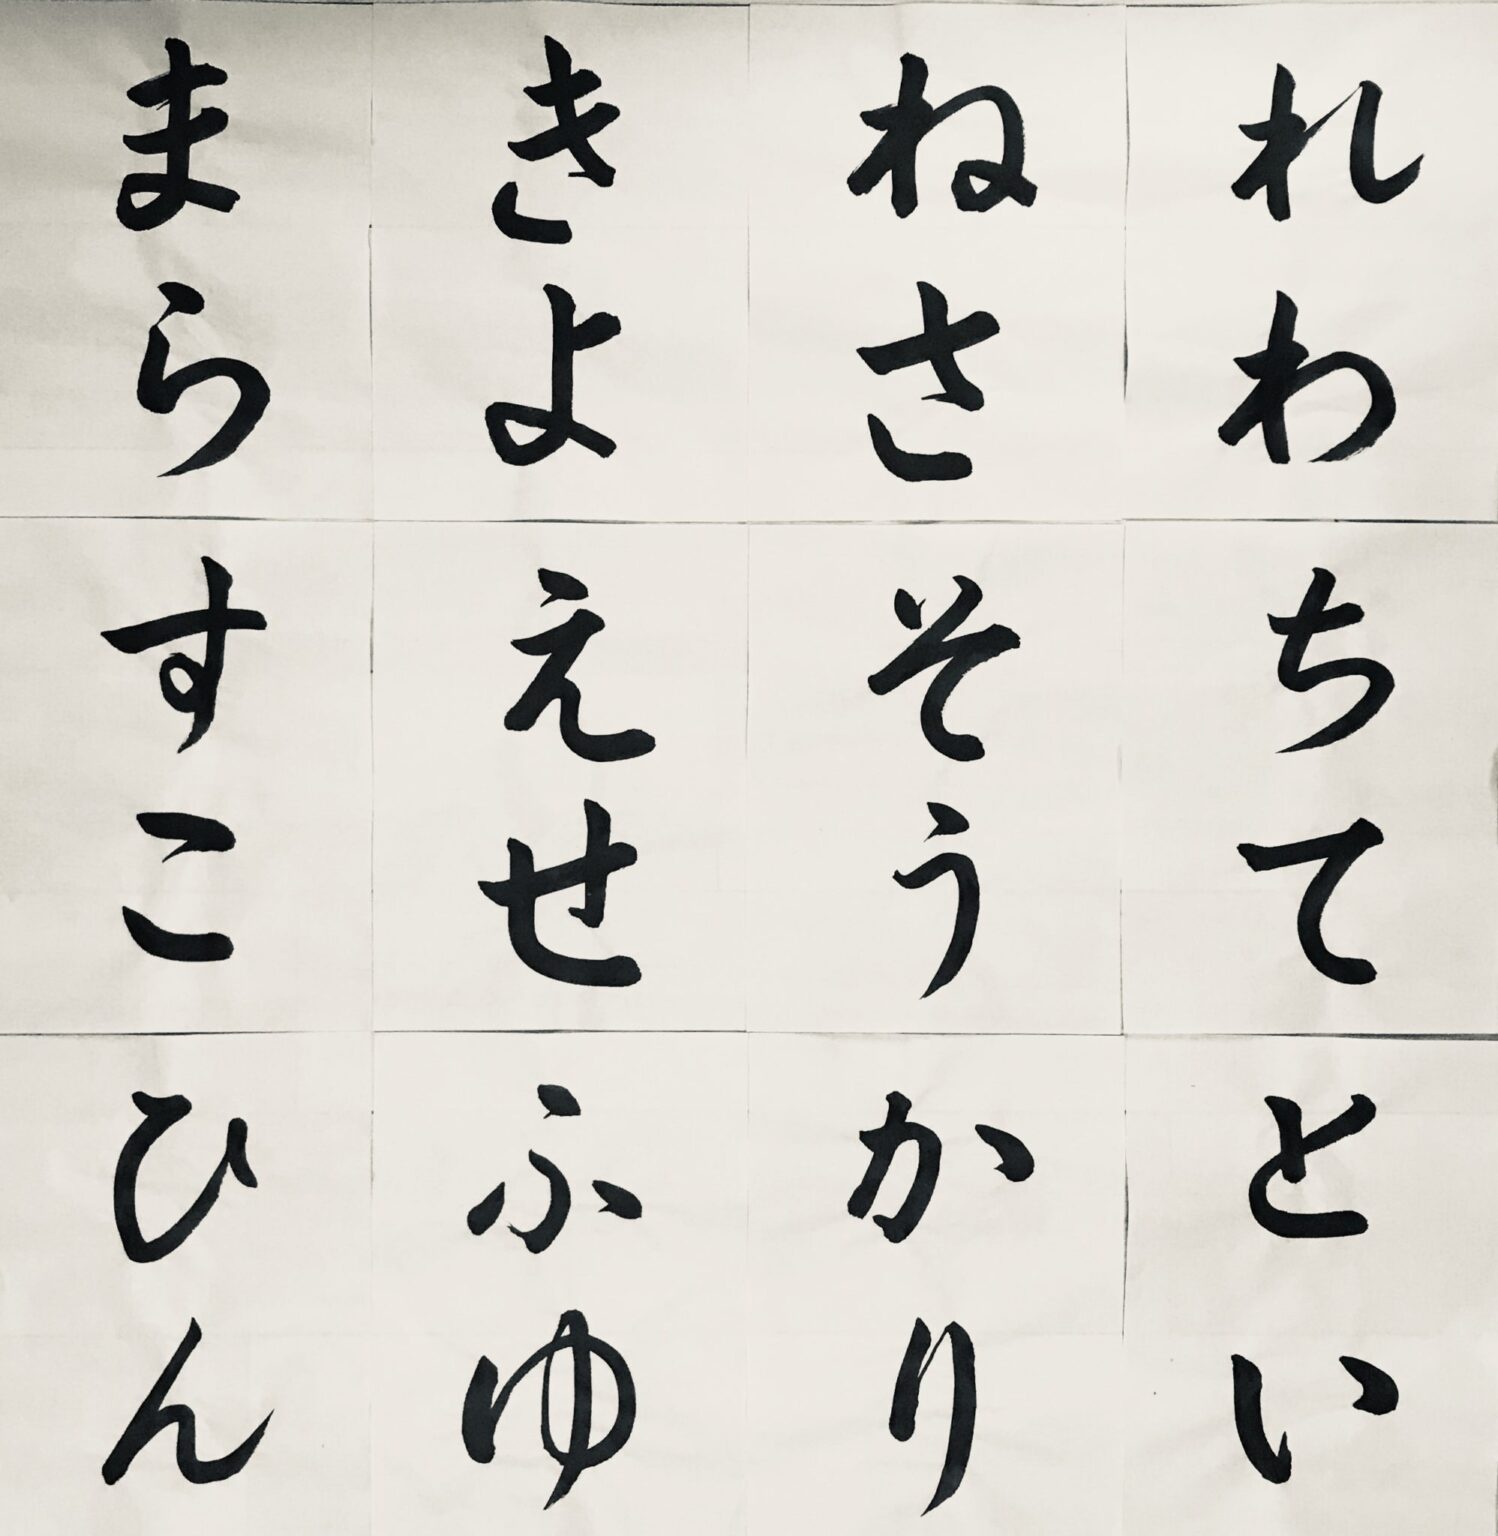 れわ
ねさ
きよ
まら
ちて
そう
えせ
すこ
とい
かり
ふゆ
ひん